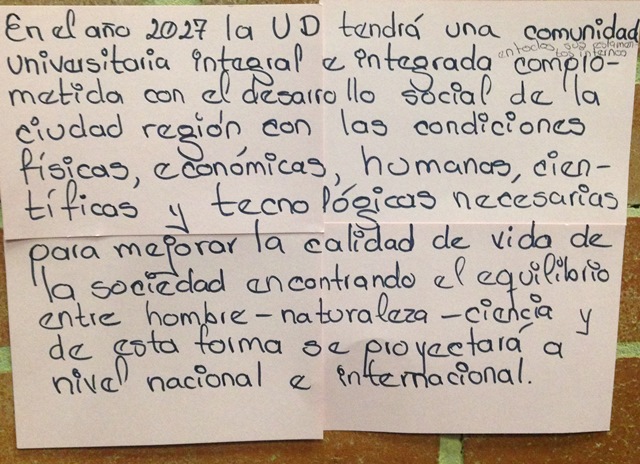 En el año 2027 la UD tendrá una comunidad
universitaria integral e integrada compro-
en todos sus estamen
tos internos
metida con el desarrollo social de la
ciudad región con las condiciones
físicas, económicas, humanas, cien-
tíficas y tecnológicas necesarias
para mejorar la calidad de vida de
la sociedad encontrando el equilibrio
entre hombre - naturaleza - ciencia y
de esta forma se proyectará a
nivel nacional e internacional.